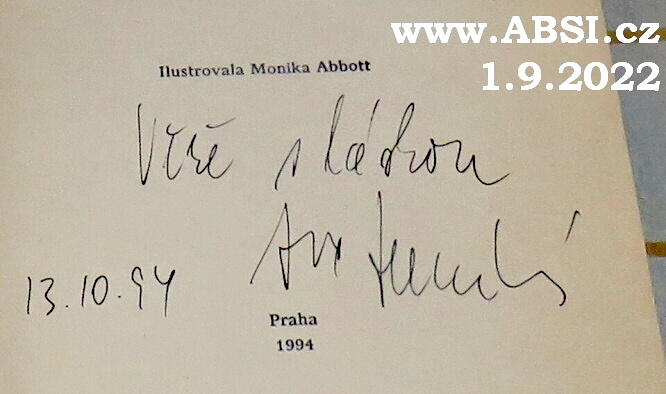 www.ABSI.cz
1.9.2022
Ilustrovala Monika Abbott
Věře s láskou
13.10.94
Praha
1994